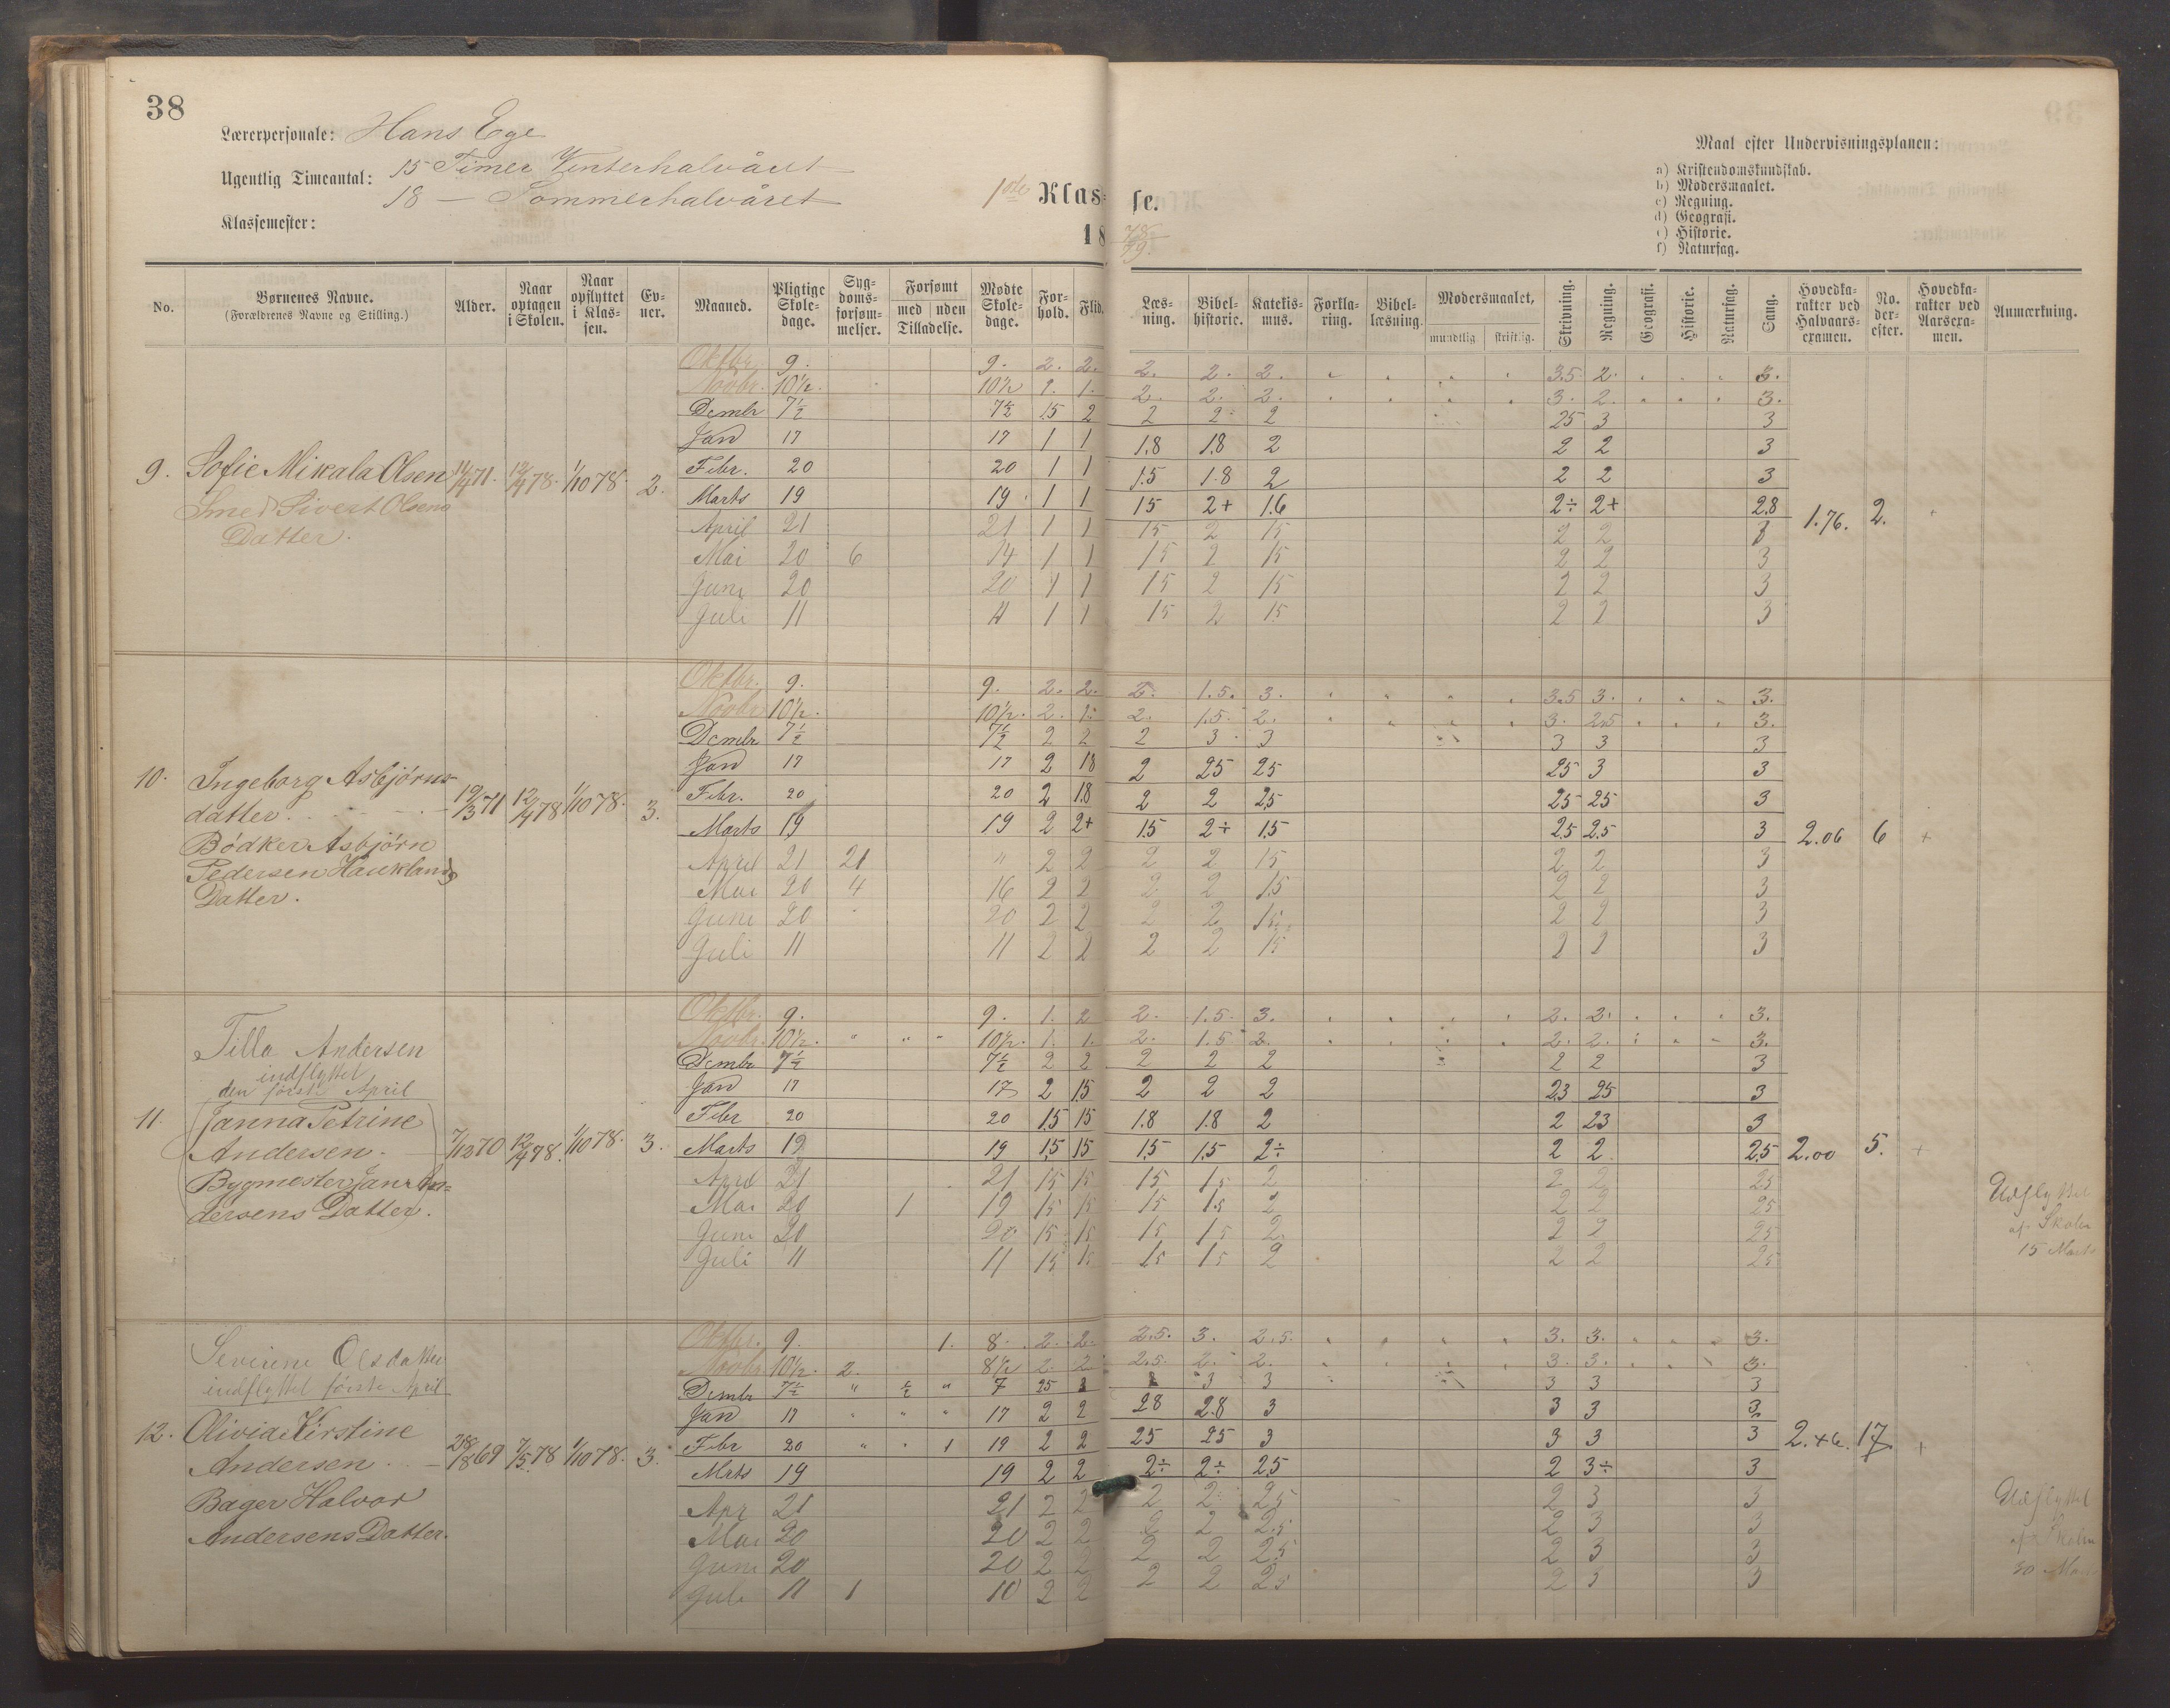 38
Lærerpersonale: Hans Ege
Ugentlig Timeantal: 15 Timer Vinterhalvåret
18 — Sommerhalvåret
Klassemester:
1ste Klas= se.
18 78-79.
Maal efter Undervisningsplanen:
a) Kristendomskundskab.
b) Modersmaalet.
c) Regning.
d) Geografi.
e) Historie.
f) Naturfag.
No. | Børnenes Navne. (Forældrenes Navne og Stilling.) | Alder. | Naar optagen i Skolen. | Naar opflyttet i Klassen. | Evner. | Maaned. | Pligtige Skoledage. | Sygdomsforsømmelser. | Forsømt med / uden Tilladelse. | Mødte Skoledage. | Forhold. | Flid. | Læsning. | Bibelhistorie. | Katekismus. | Forklaring. | Bibellæsning. | Modersmaalet, mundtlig. skriftlig. | Skrivning. | Regning. | Geografi. | Historie. | Naturfag. | Sang. | Hovedkarakter ved Halvaarsexamen. | No. derefter. | Hovedkarakter ved Aarsexamen. | Anmærkning.
9. Sofie Mikala Olsen 14/4 71. 12/4 78. 1/10 78. 2.
Smed Sivert Olsens
Datter.
Oktbr. 9. 9. 2. 2. 2. 2. 2. 3.5 2. 3.
Novbr. 10½. 10½ 1. 1. 2. 2. 2. 3. 2. 3.
Dcmbr 7½ 7½ 1.5 2 2 2 2 25 3 3
Jan 17 17 1 1 1.8 1.8 2 2 2 3
Febr. 20 20 1 1 1.5 1.8 2 2 2 3
Marts 19 19 1 1 15 2+ 1.6 2÷ 2+ 2.8 1.76. 2.
April 21 21 1 1 15 2 15 2 2 3
Mai 20 6 14 1 1 15 2 15 2 2 3
Juni 20 20 1 1 15 2 15 2 2 3
Juli 11 11 1 1 15 2 15 2 2 3
10. Ingeborg Asbjørns-
datter. 19/3 71 12/4 78 1/10 78. 3.
Bödker Asbjørn
Pedersen Hauklands
Datter.
Oktbr. 9. 9. 2. 2. 2. 1.5. 3. 3.5 3. 3.
Novbr 10½. 10½. 2. 1. 2. 1.5. 2. 3. 2.5 3.
Dcmbr 7½ 7½ 2 2 2 3 3 3 3 3
Jan 17 17 2 18 2 25 25 25 3 3
Febr. 20 20 2 1.8 2 2 2.5 25 25 3
Marts 19 19 2 2+ 1.5 2÷ 1.5 2.5 2.5 3 2.06 6
April 21 21 " 2 2 2 2 15 2 2 3
Mai 20 4 16 2 2 2 2 1.5 2 2 3
Juni 20 20 2 2 2 2 15 2 2 3
Juli 11 11 2 2 2 2 15 2 2 3
Tilla Andersen
indflyttet
den første April
11. (Janna Petrine
Andersen. 7/12 70 12/4 78. 1/10 78. 3.
Bygmester Jan An=
dersens Datter.
Oktbr. 9. 9. 1. 2 2. 1.5. 3. 2. 2. 3.
Novbr. 10½. 10½. 1. 1. 2. 1.5 2. 2. 2. 3.
Dcmbr 7½ 7½ 2 2 2 2 2 2 2 3
Jan 17 17 2 1.5 2 2 2 2.3 25 3
Febr 20 20 1.5 15 1.8 1.8 2 2 23 3
Marts 19 19 1.5 15 1.5 1.5 2÷ 2 2 2.5 2.00 5.
April 21 21 15 15 15 15 2 2 2 25
Mai 20 1 19 15 15 15 15 2 2 2 25
Juni 20 20 15 15 15 15 2 2 2 25
Juli 11 11 15 15 15 15 2 2 2 25
Udflyttet
af Skolen
15 Marts
Severine Olsdatter
indflyttet første April
12. Olivia Kirstine
Andersen. 28/8 69 7/5 78 1/10 78. 3.
Bager Halvor
Andersens Datter.
Oktbr. 9. 1. 8. 2. 2. 2.5. 3. 2.5. 3. 3. 3.
Novbr 10½. 2. 8½ 2. 2 2.5. 2. 2. 3. 3. 3.
Dcmbr 7½ " ½ " 7 25 3 3 3 3 3 3
Jan 17 17 2 2 28 2.8 3 3 3 3
Febr 20 1 19 2 2 25 25 3 3 3 3
Mrts 19 19 2 2 2÷ 2÷ 2.5 2 3÷ 3 17
Apr 21 21 2 2 2 2 2.5 2 3 3
Mai 20 20 2 2 2 2 2.5 2 3 3
Juni 20 20 2 2 2 2 2.5 2 3 3
Juli 11 1 10 2 2 2 2 25 2 3 3
Udflyttet
af Skolen
30